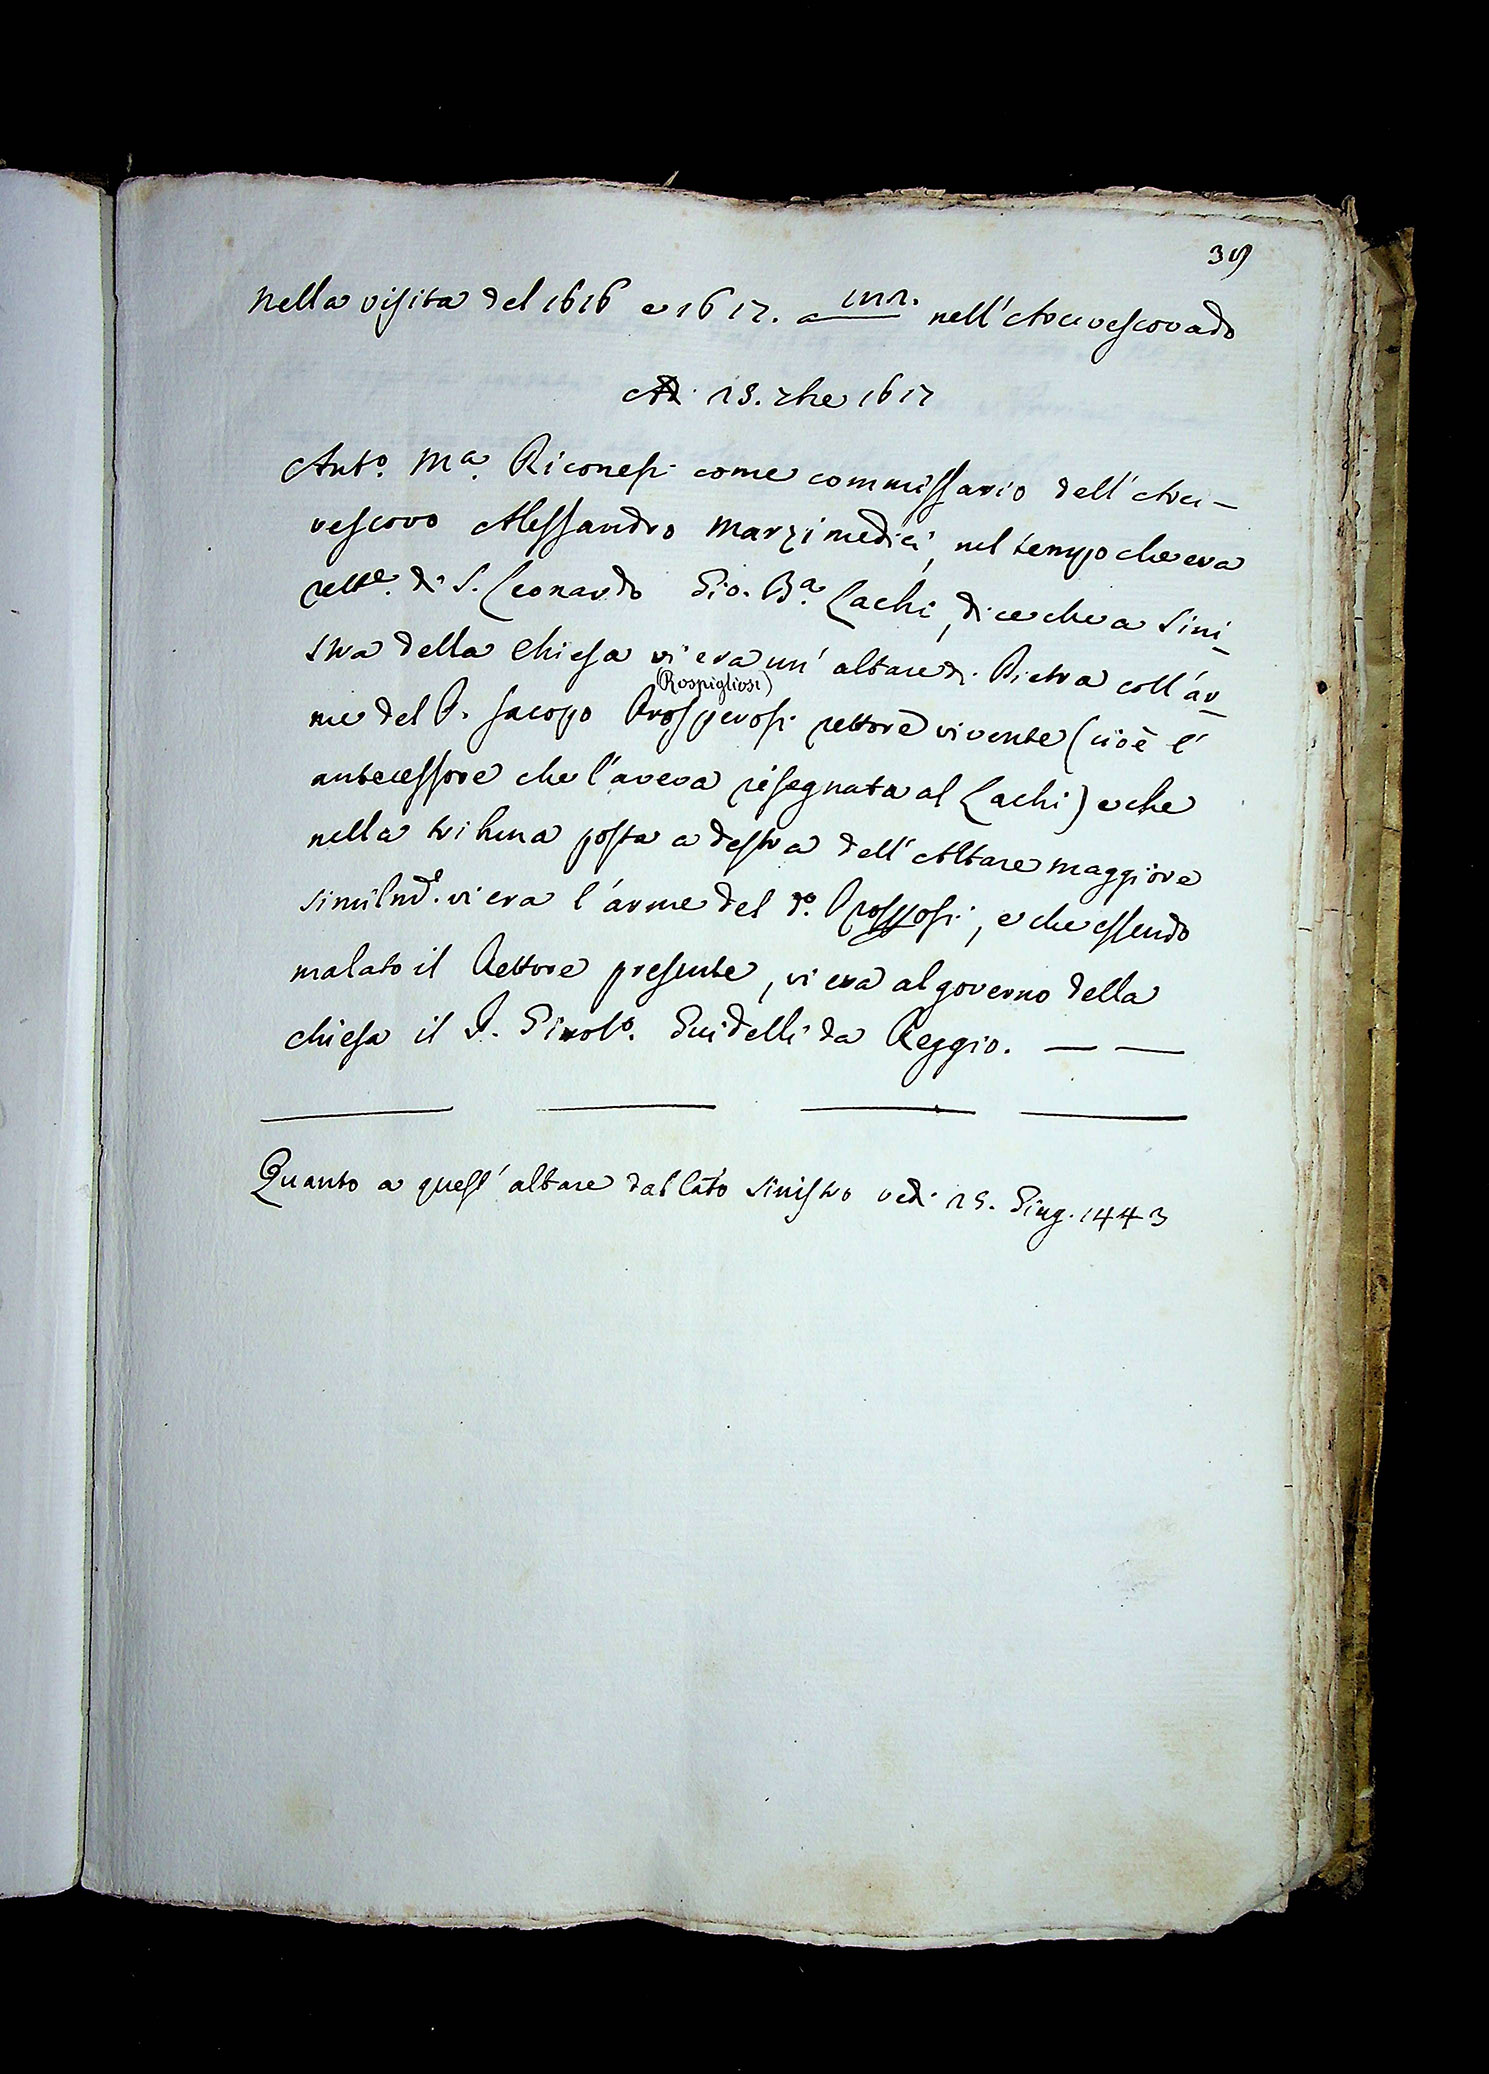 39
Nella visita del 1616 e 1617. a nell'Arcivescovado
Adi 23. 7bre 1617
Anto. Ma. Riconesi come commissario dell'Arci-
vescovo Alessandro Marzimedici, nel tempo che era
rette. di S. Leonardo Gio. Ba. Lachi, dice che a Sini-
stra della Chiesa vi era un' altare di Pietra coll'ar-
(Rospigliosi)
me del P. Jacopo Prosperosi rettore vivente (cioè l'
antecessore che l'aveva risegnata al Lachi) e che
nella tribuna posta a destra dell'Altare maggiore
similmte. vi era l'arme del do. , e che essendo
malato il Rettore presente, vi era al governo della
chiesa il P. Girolo. Guidelli da Reggio. — —
Quanto a quest'altare dal lato sinistro vedi 25. Giug. 1443